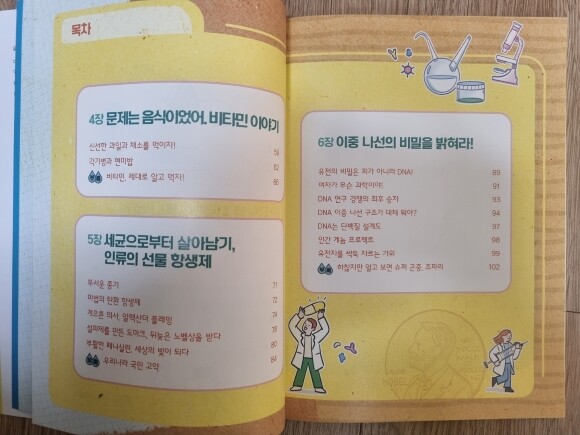 목차
4장 문제는 음식이었어, 비타민 이야기
신선한 과일과 채소를 먹이자! 58
각기병과 현미밥 62
비타민, 제대로 알고 먹자! 66
5장 세균으로부터 살아남기,
인류의 선물 항생제
무서운 종기 71
마법의 탄환 항생제 72
게으른 의사, 알렉산더 플레밍 74
설파제를 만든 도마크, 뒤늦은 노벨상을 받다 78
부활한 페니실린, 세상의 빛이 되다 80
우리나라 국민 고약 84
6장 이중 나선의 비밀을 밝혀라!
유전의 비밀은 피가 아니라 DNA! 89
여자가 무슨 과학이야! 91
DNA 연구 경쟁의 최후 승자 93
DNA 이중 나선 구조가 대체 뭐야? 94
DNA는 단백질 설계도 97
인간 게놈 프로젝트 98
유전자를 싹둑 자르는 가위 99
하찮지만 알고 보면 슈퍼 곤충, 초파리 102